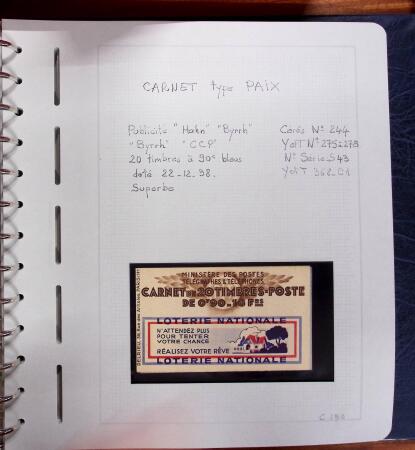 CARNET type PAIX
Publicité "Hahn" "Byrrh"
"Byrrh" "CCP"
20 timbres à 90c bleus
daté 22-12-38.
Superbe
Cérès N° 244
YetT N° 275-278
N° Série S 43
YetT 368-C1
MINISTÈRE DES POSTES
TÉLÉGRAPHES & TÉLÉPHONES
CARNET DE 20 TIMBRES-POSTE
DE 0F90 - 18 FRS
LOTERIE NATIONALE
N'ATTENDEZ PLUS
POUR TENTER
VOTRE CHANCE
RÉALISEZ VOTRE RÊVE
LOTERIE NATIONALE